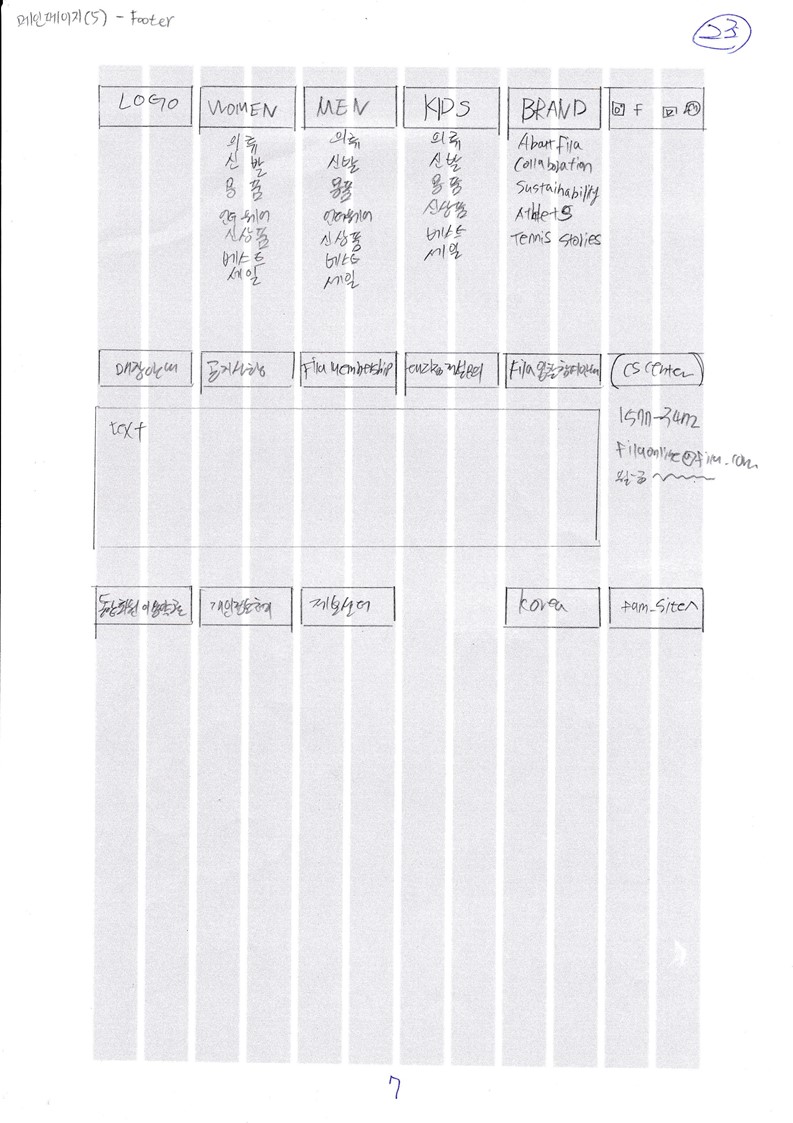 메인페이지(5) - Footer
2조
LOGO
WOMEN
의류
신발
용품
언더웨어
신상품
베스트
세일
MEN
의류
신발
용품
언더웨어
신상품
베스트
세일
KIDS
의류
신발
용품
신상품
베스트
세일
BRAND
About fila
Collaboration
Sustainability
Athletes
Tennis Stories
f
매장안내
공지사항
Fila Membership
Fila
CS Center
text
filaonline@fila.com
월-금
통합회원 이용약관
개인정보
제보센터
Korea
Fam_Site
7